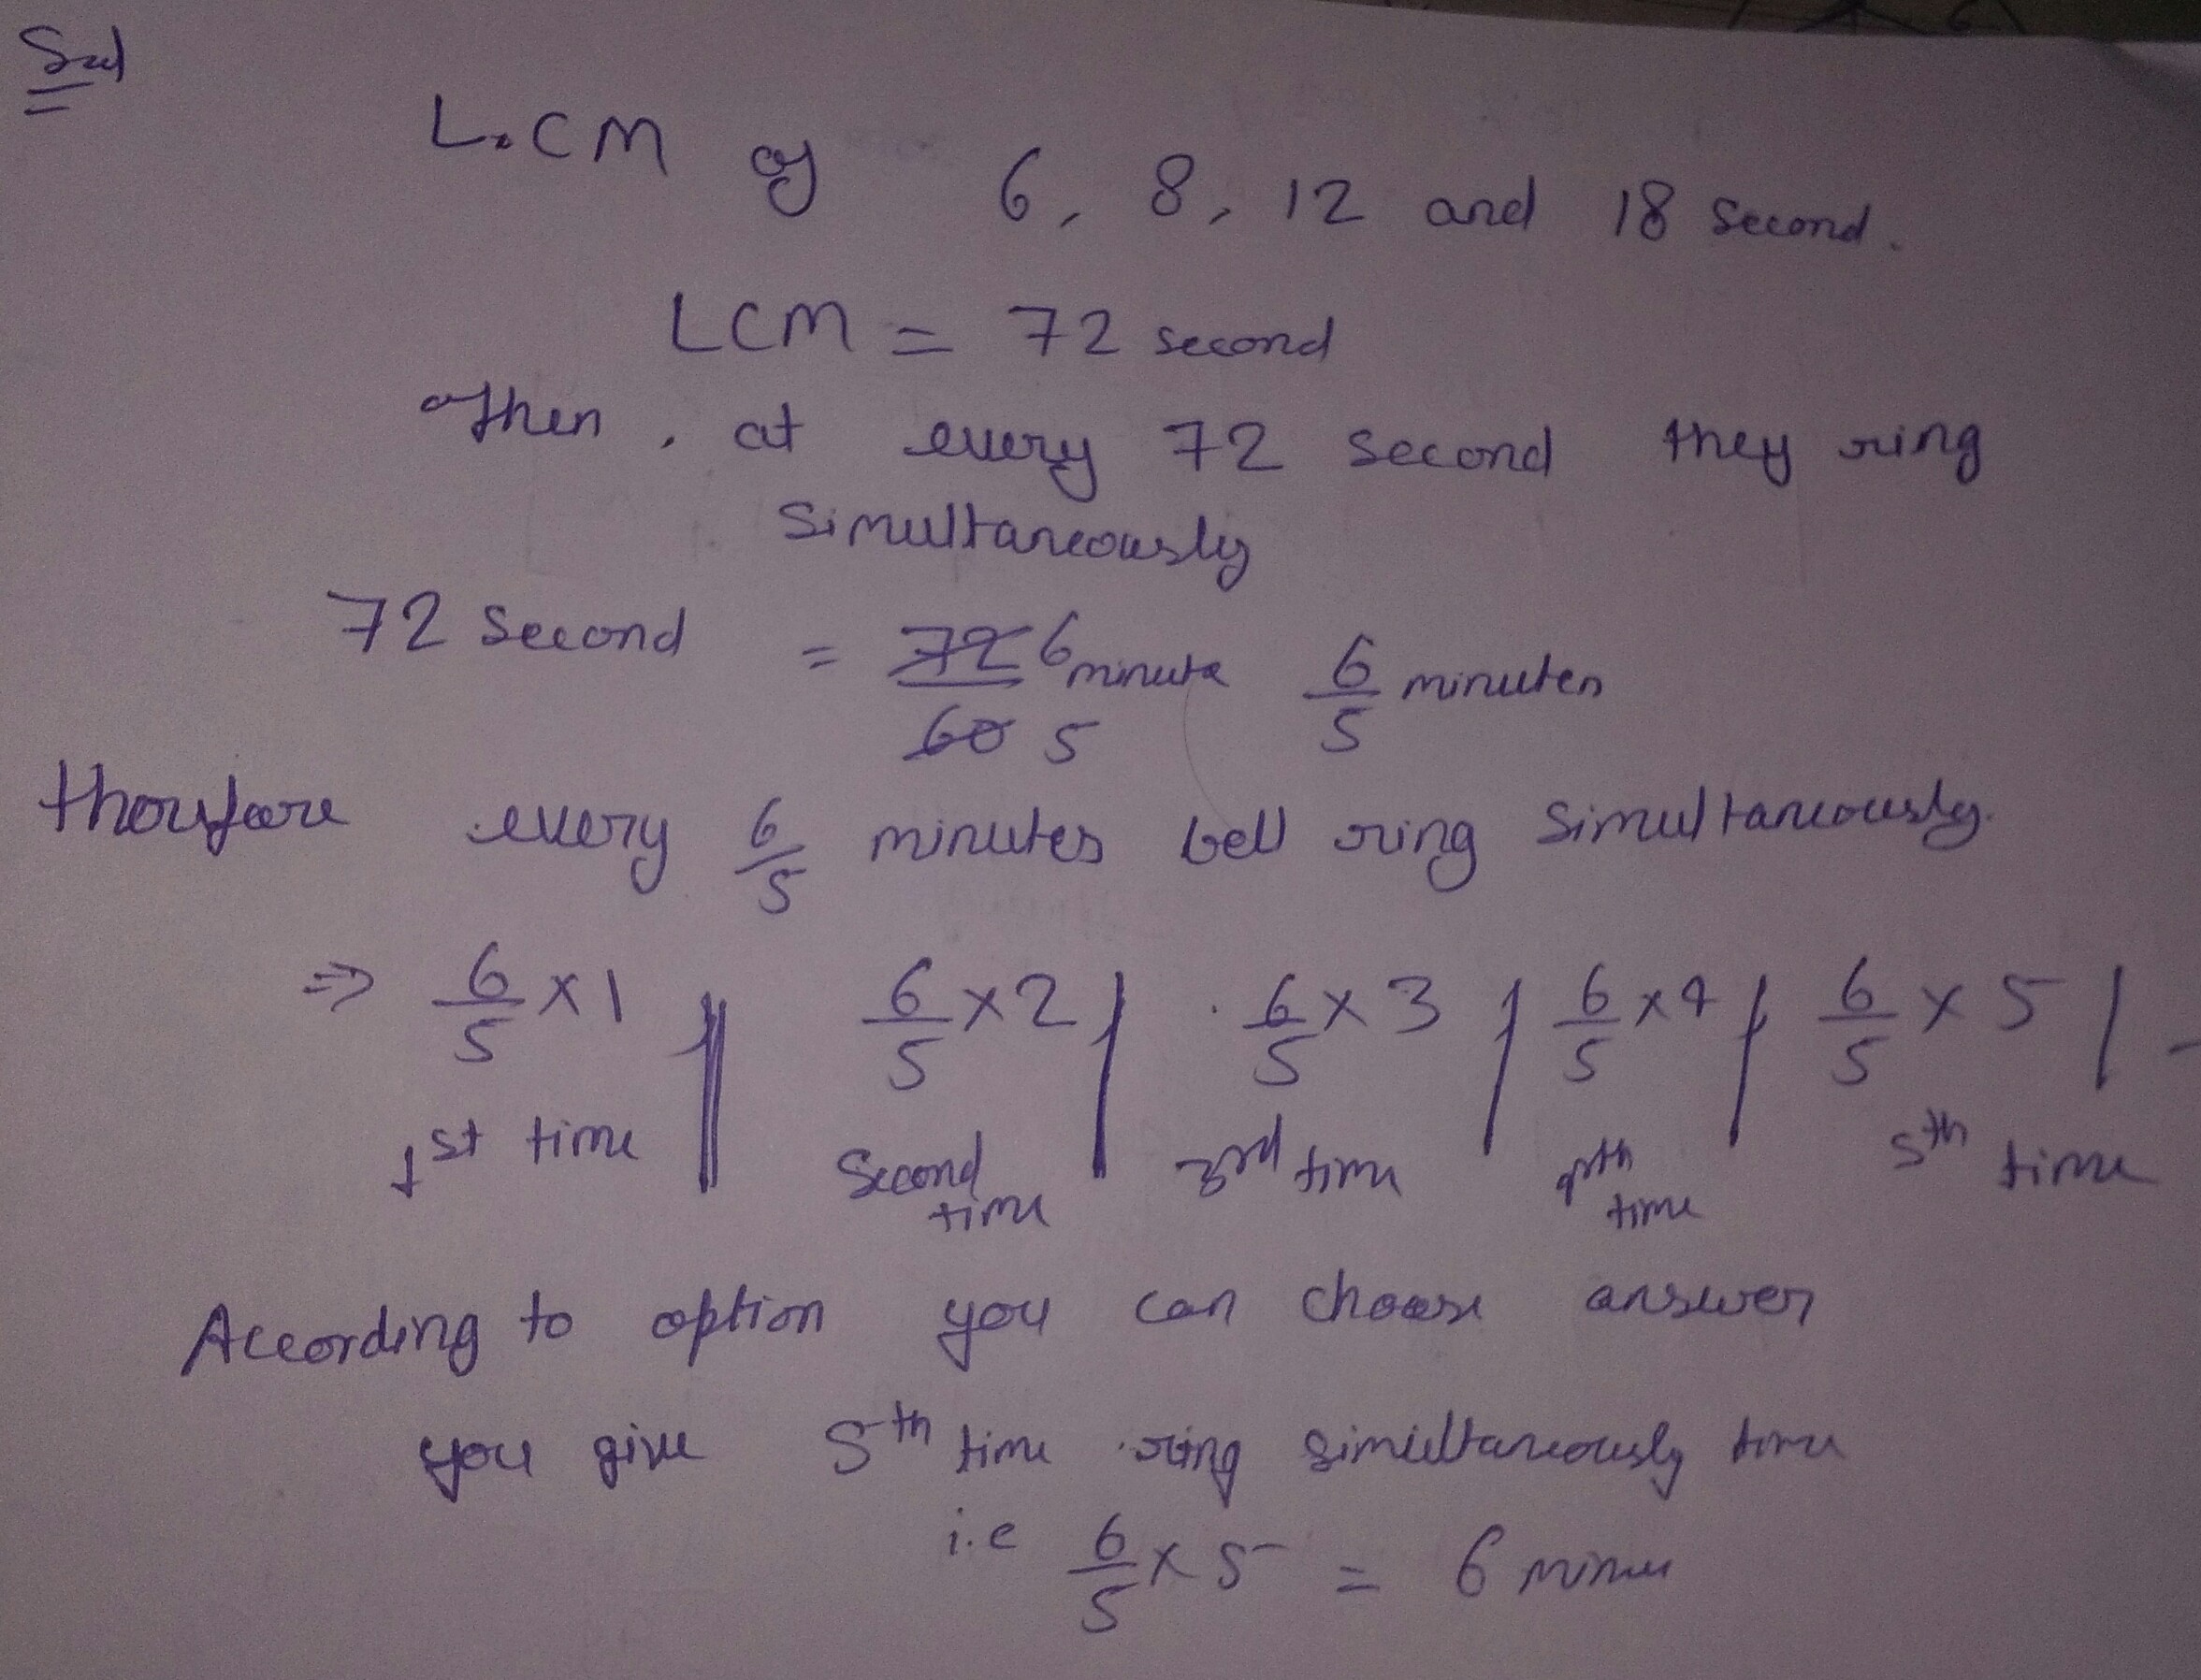 Sol
L.CM of 6, 8, 12 and 18 second.
LCM = 72 second
then, at every 72 second they ring
simultaneously
72 second = 72/60 6/5 minute 6/5 minutes
therefore every 6/5 minutes bell ring simultaneously.
⇒ 6/5 × 1 | 6/5 × 2 | 6/5 × 3 | 6/5 × 4 | 6/5 × 5 | -
1st time Second time 3rd time 4th time 5th time
According to option you can choose answer
you give 5th time ring simultaneously time
i.e 6/5 × 5 = 6